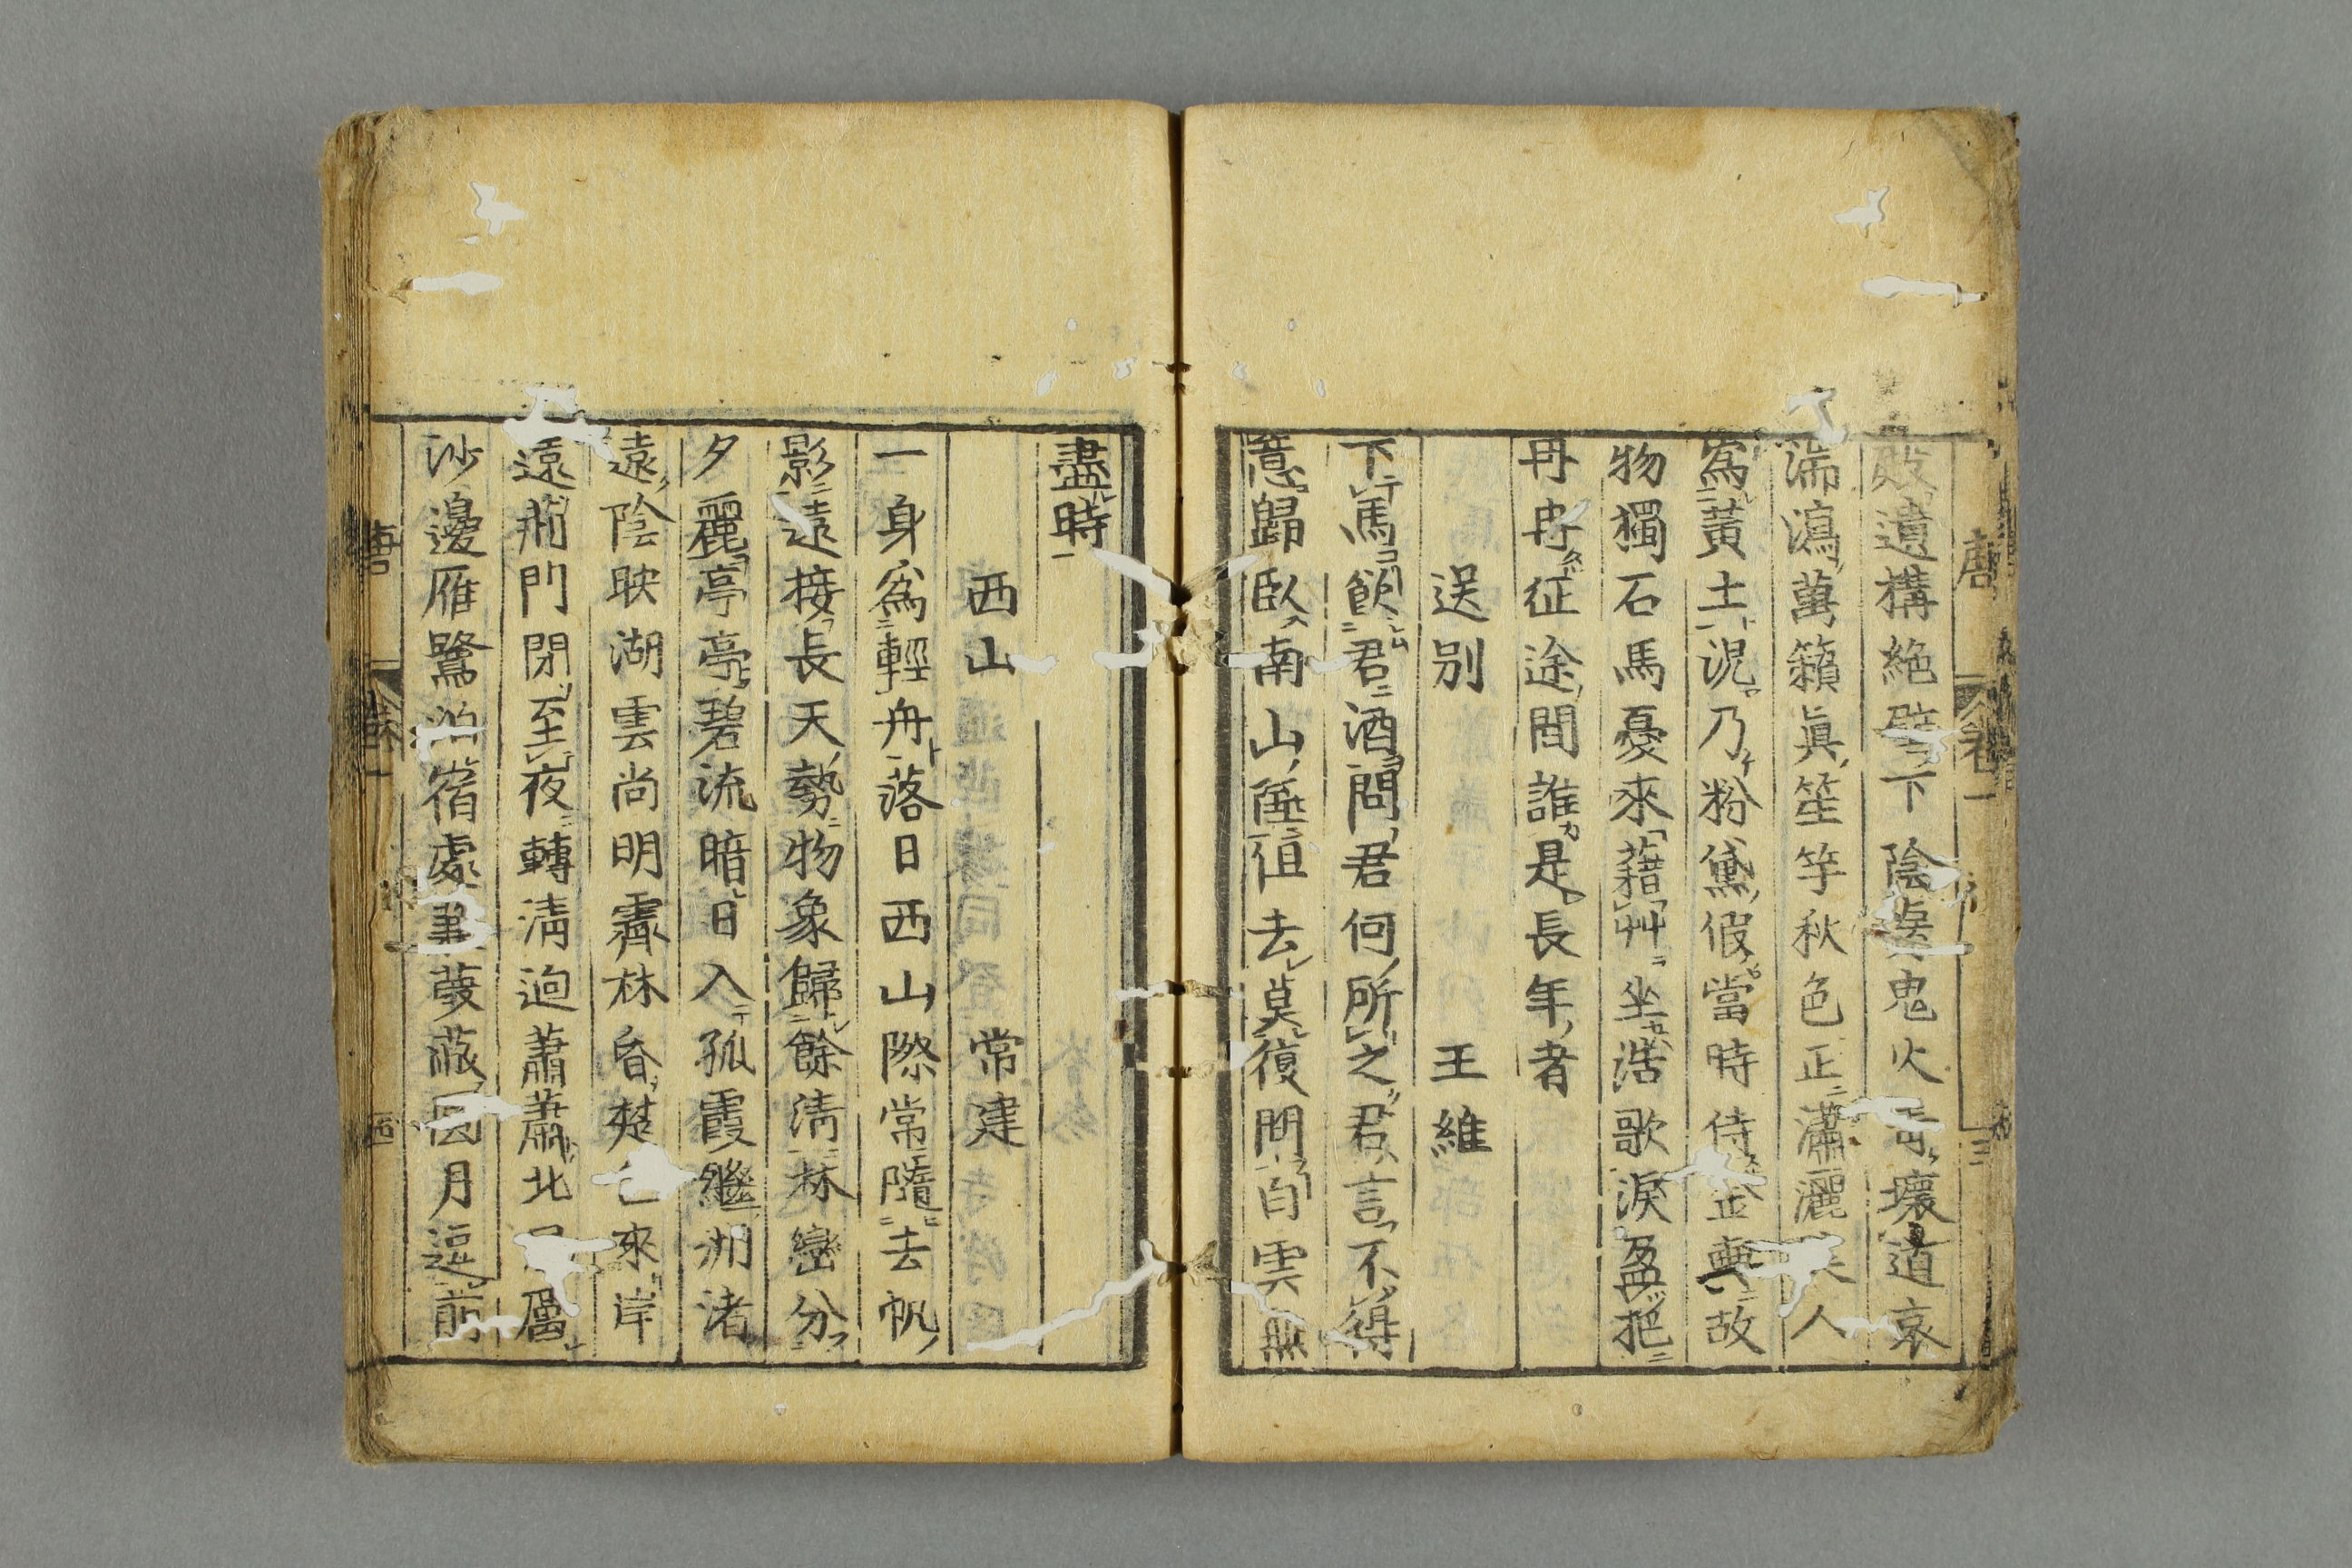 唐 卷一 三
殿遺構絶壁下陰房鬼火青壞道哀
湍瀉萬籟眞笙竽秋色正瀟灑美人
爲黃土況乃粉黛假當時侍金輿故
物獨石馬憂來藉艸坐浩歌淚盈把
冉冉征途間誰是長年者
送別 王維
下馬飮君酒問君何所之君言不得
意歸臥南山陲但去莫復問白雲無
盡時
西山 常建
一身爲輕舟落日西山際常隨去帆
影遠接長天勢物象歸餘淸林巒分
夕麗亭亭碧流暗日入孤霞繼洲渚
遠陰映湖雲尚明霽林昏楚色來岸
遠荊門閉至夜轉淸迥蕭蕭北 厲
沙邊雁鷺泊宿處蒹葭蔽圓月逗前
唐 卷一 四